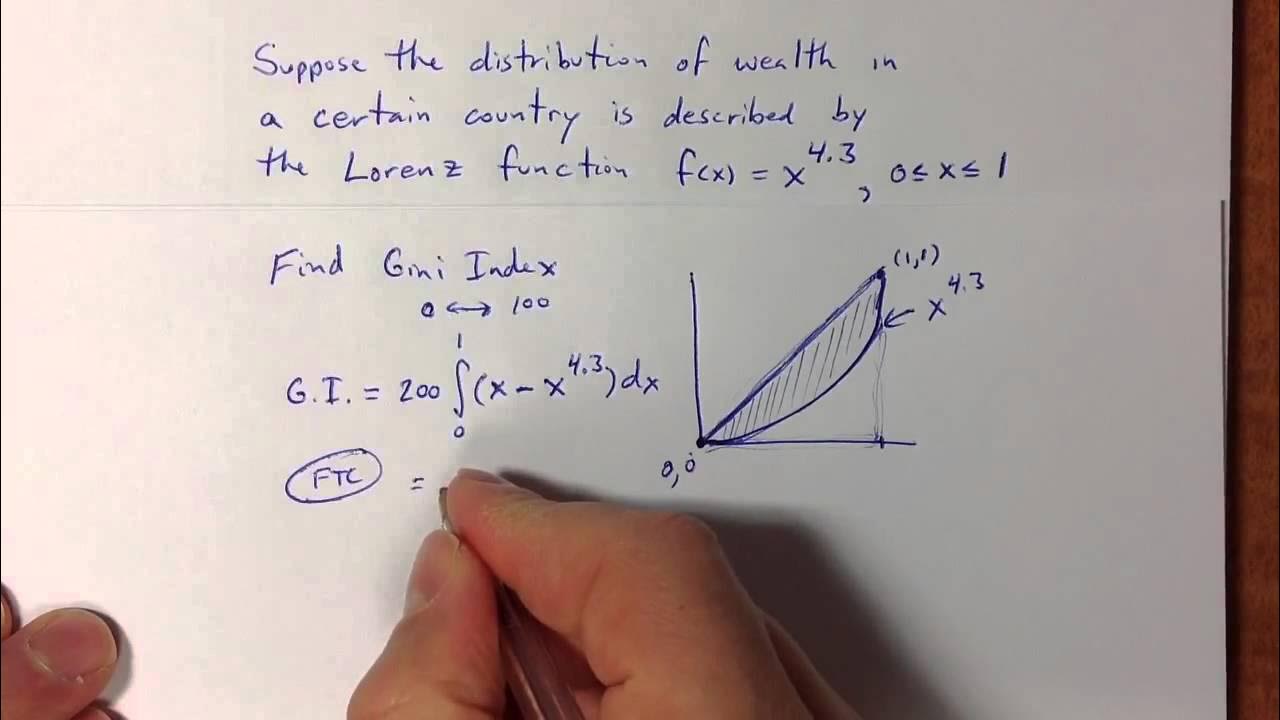 Suppose the distribution of wealth in
a certain country is described by
the Lorenz function f(x) = x^4.3, 0 ≤ x ≤ 1
Find Gini Index
0 ↔ 100
G.I. = 200 ∫₀¹ (x - x^4.3) dx
FTC =
(1,1)
← x^4.3
0,0